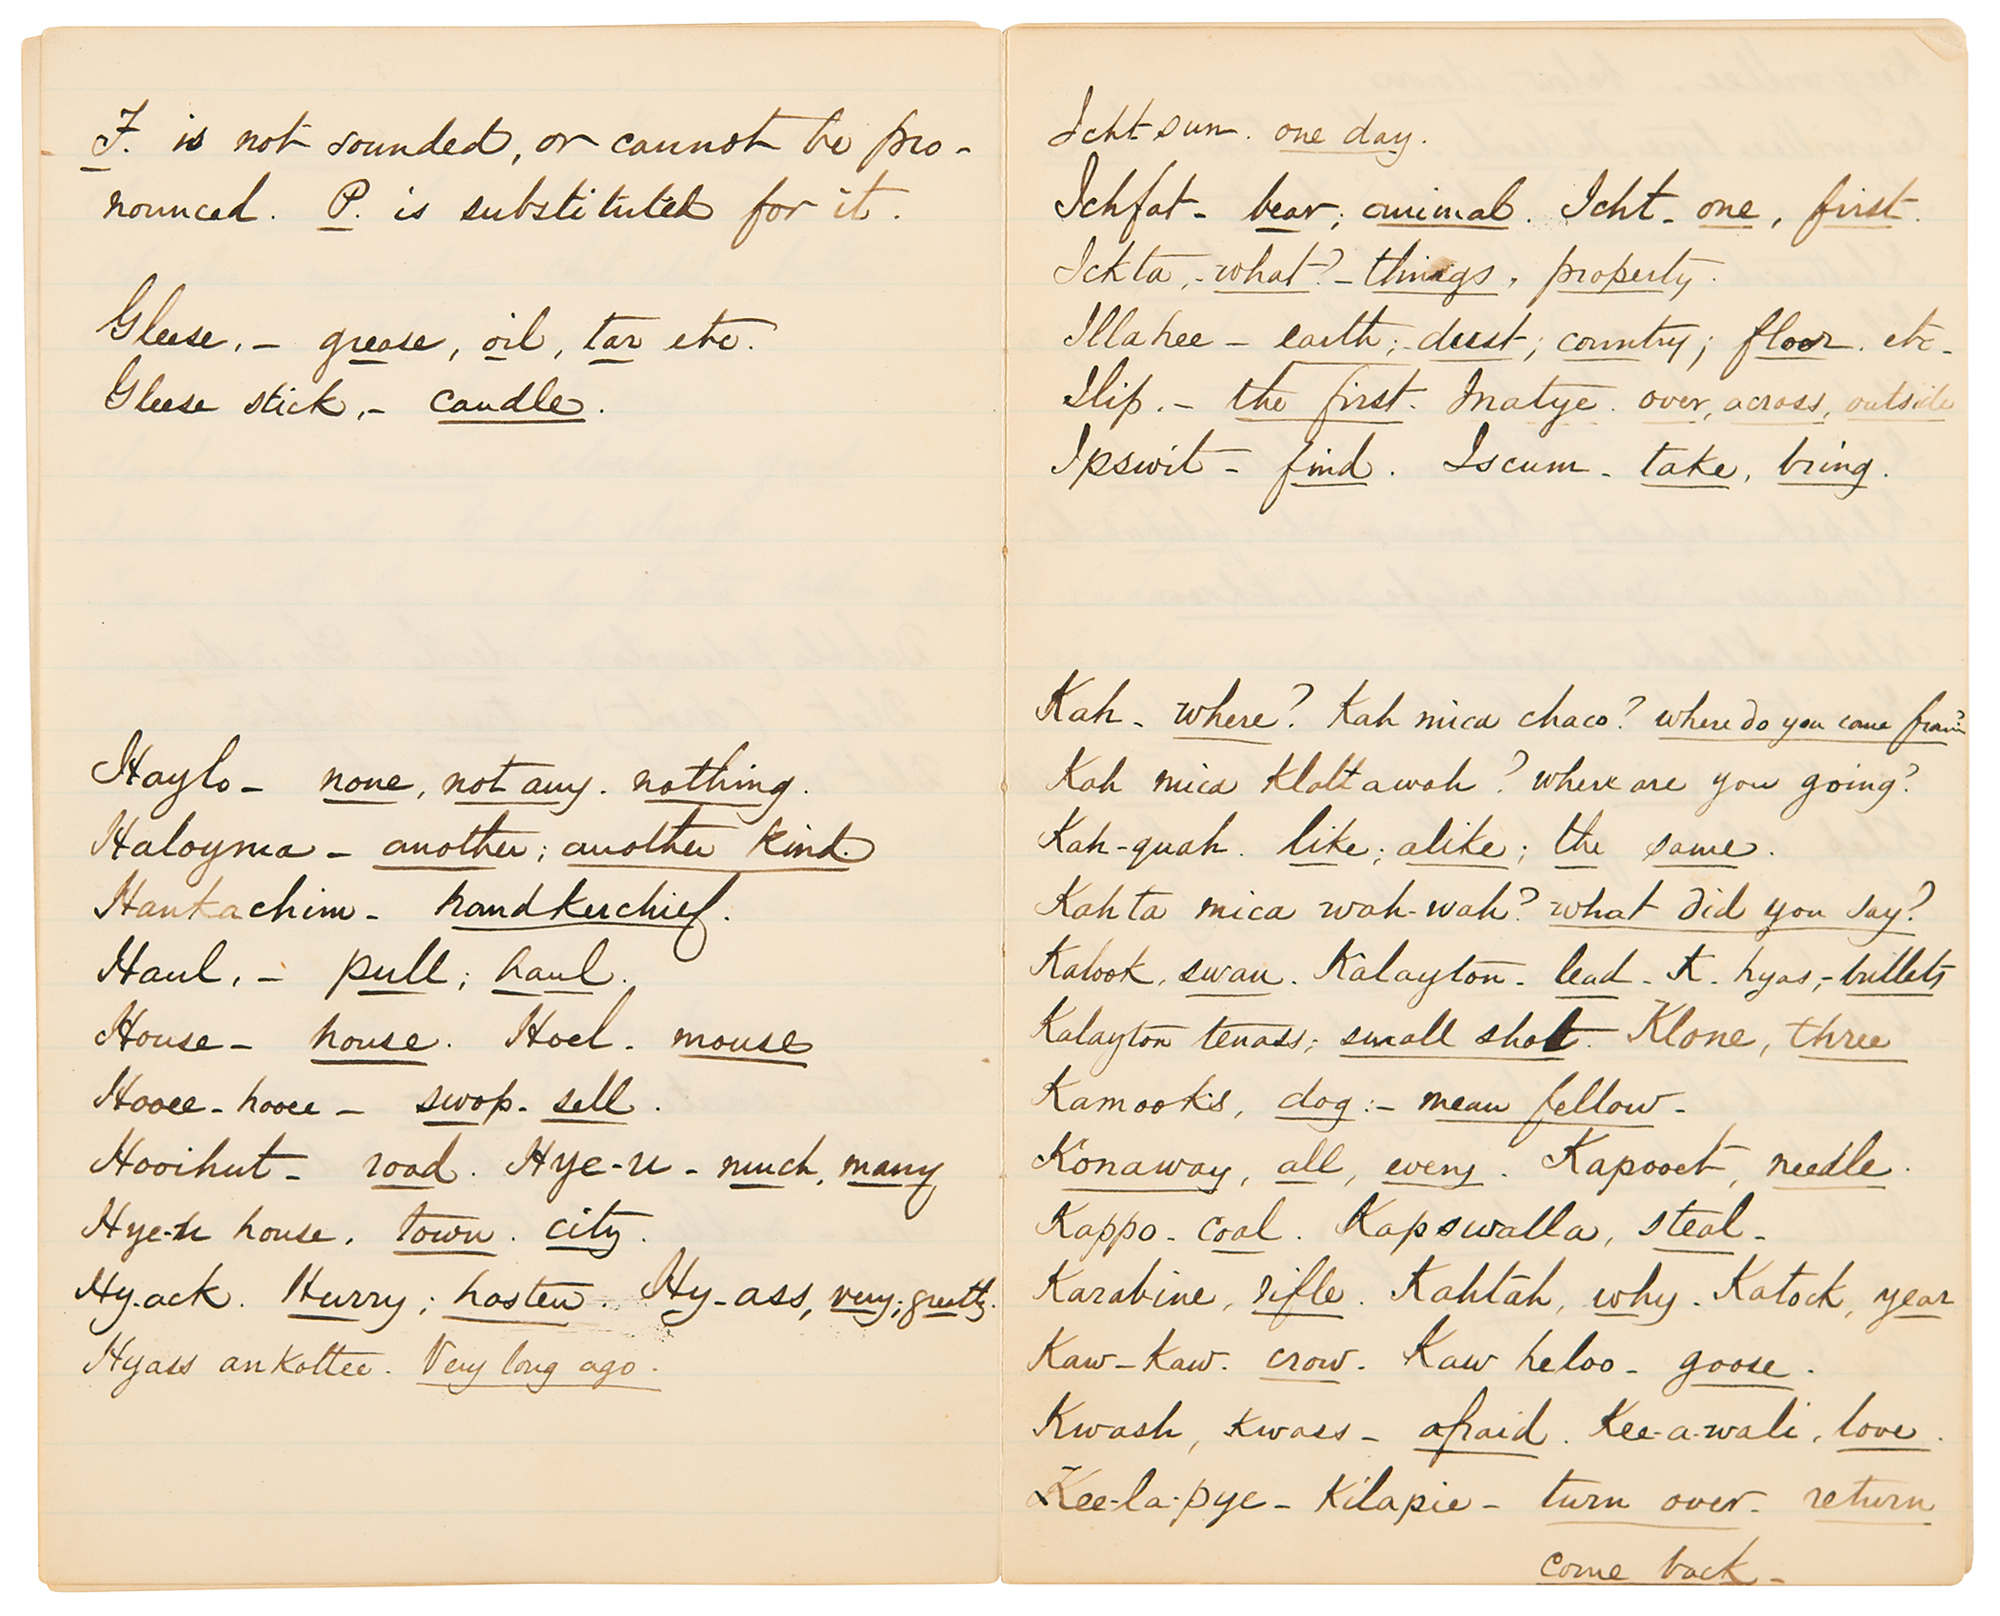 F. is not sounded, or cannot be pro-
nounced. P. is substituted for it.
Gleese, - grease, oil, tar etc.
Gleese stick, - candle.
Haylo - none, not any. nothing.
Haloyma - another; another kind.
Hankachim - handkerchief.
Haul, - pull; haul.
House - house. Hoel - mouse
Hooee-hooee - swop - sell.
Hooihut - road. Hye-u - much, many
Hye-u house. town. city.
Hy-ack. Hurry; hasten. Hy-ass, very; greatly.
Hyass ankottee. Very long ago.
Icht sun. one day.
Ichfat - bear; animal. Icht - one, first.
Ickta, - what? - things, property.
Illahee - earth; dust; country; floor. etc -
Ilip. - the first. Inatye. over, across, outside
Ipswit - find. Iscum - take, bring.
Kah - where? Kah mica chaco? where do you come from?
Kah mica Klattawah? where are you going?
Kah-quah. like; alike; the same.
Kahta mica wah-wah? what did you say?
Kalook, swan. Kalayton - lead - K. hyas, - bullets
Kalayton tenass; small shot. Klone, three
Kamooks, dog: - mean fellow -
Konaway, all, every. Kapooet, needle.
Kappo - coal. Kapswalla, steal -
Karabine, rifle. Kahtah, why. Katock, year
Kaw-Kaw. crow. Kaw heloo - goose.
Kwash, kwass - afraid. Kee-a-wali, love.
Kee-la-pye - Kilapie - turn over - return
come back -